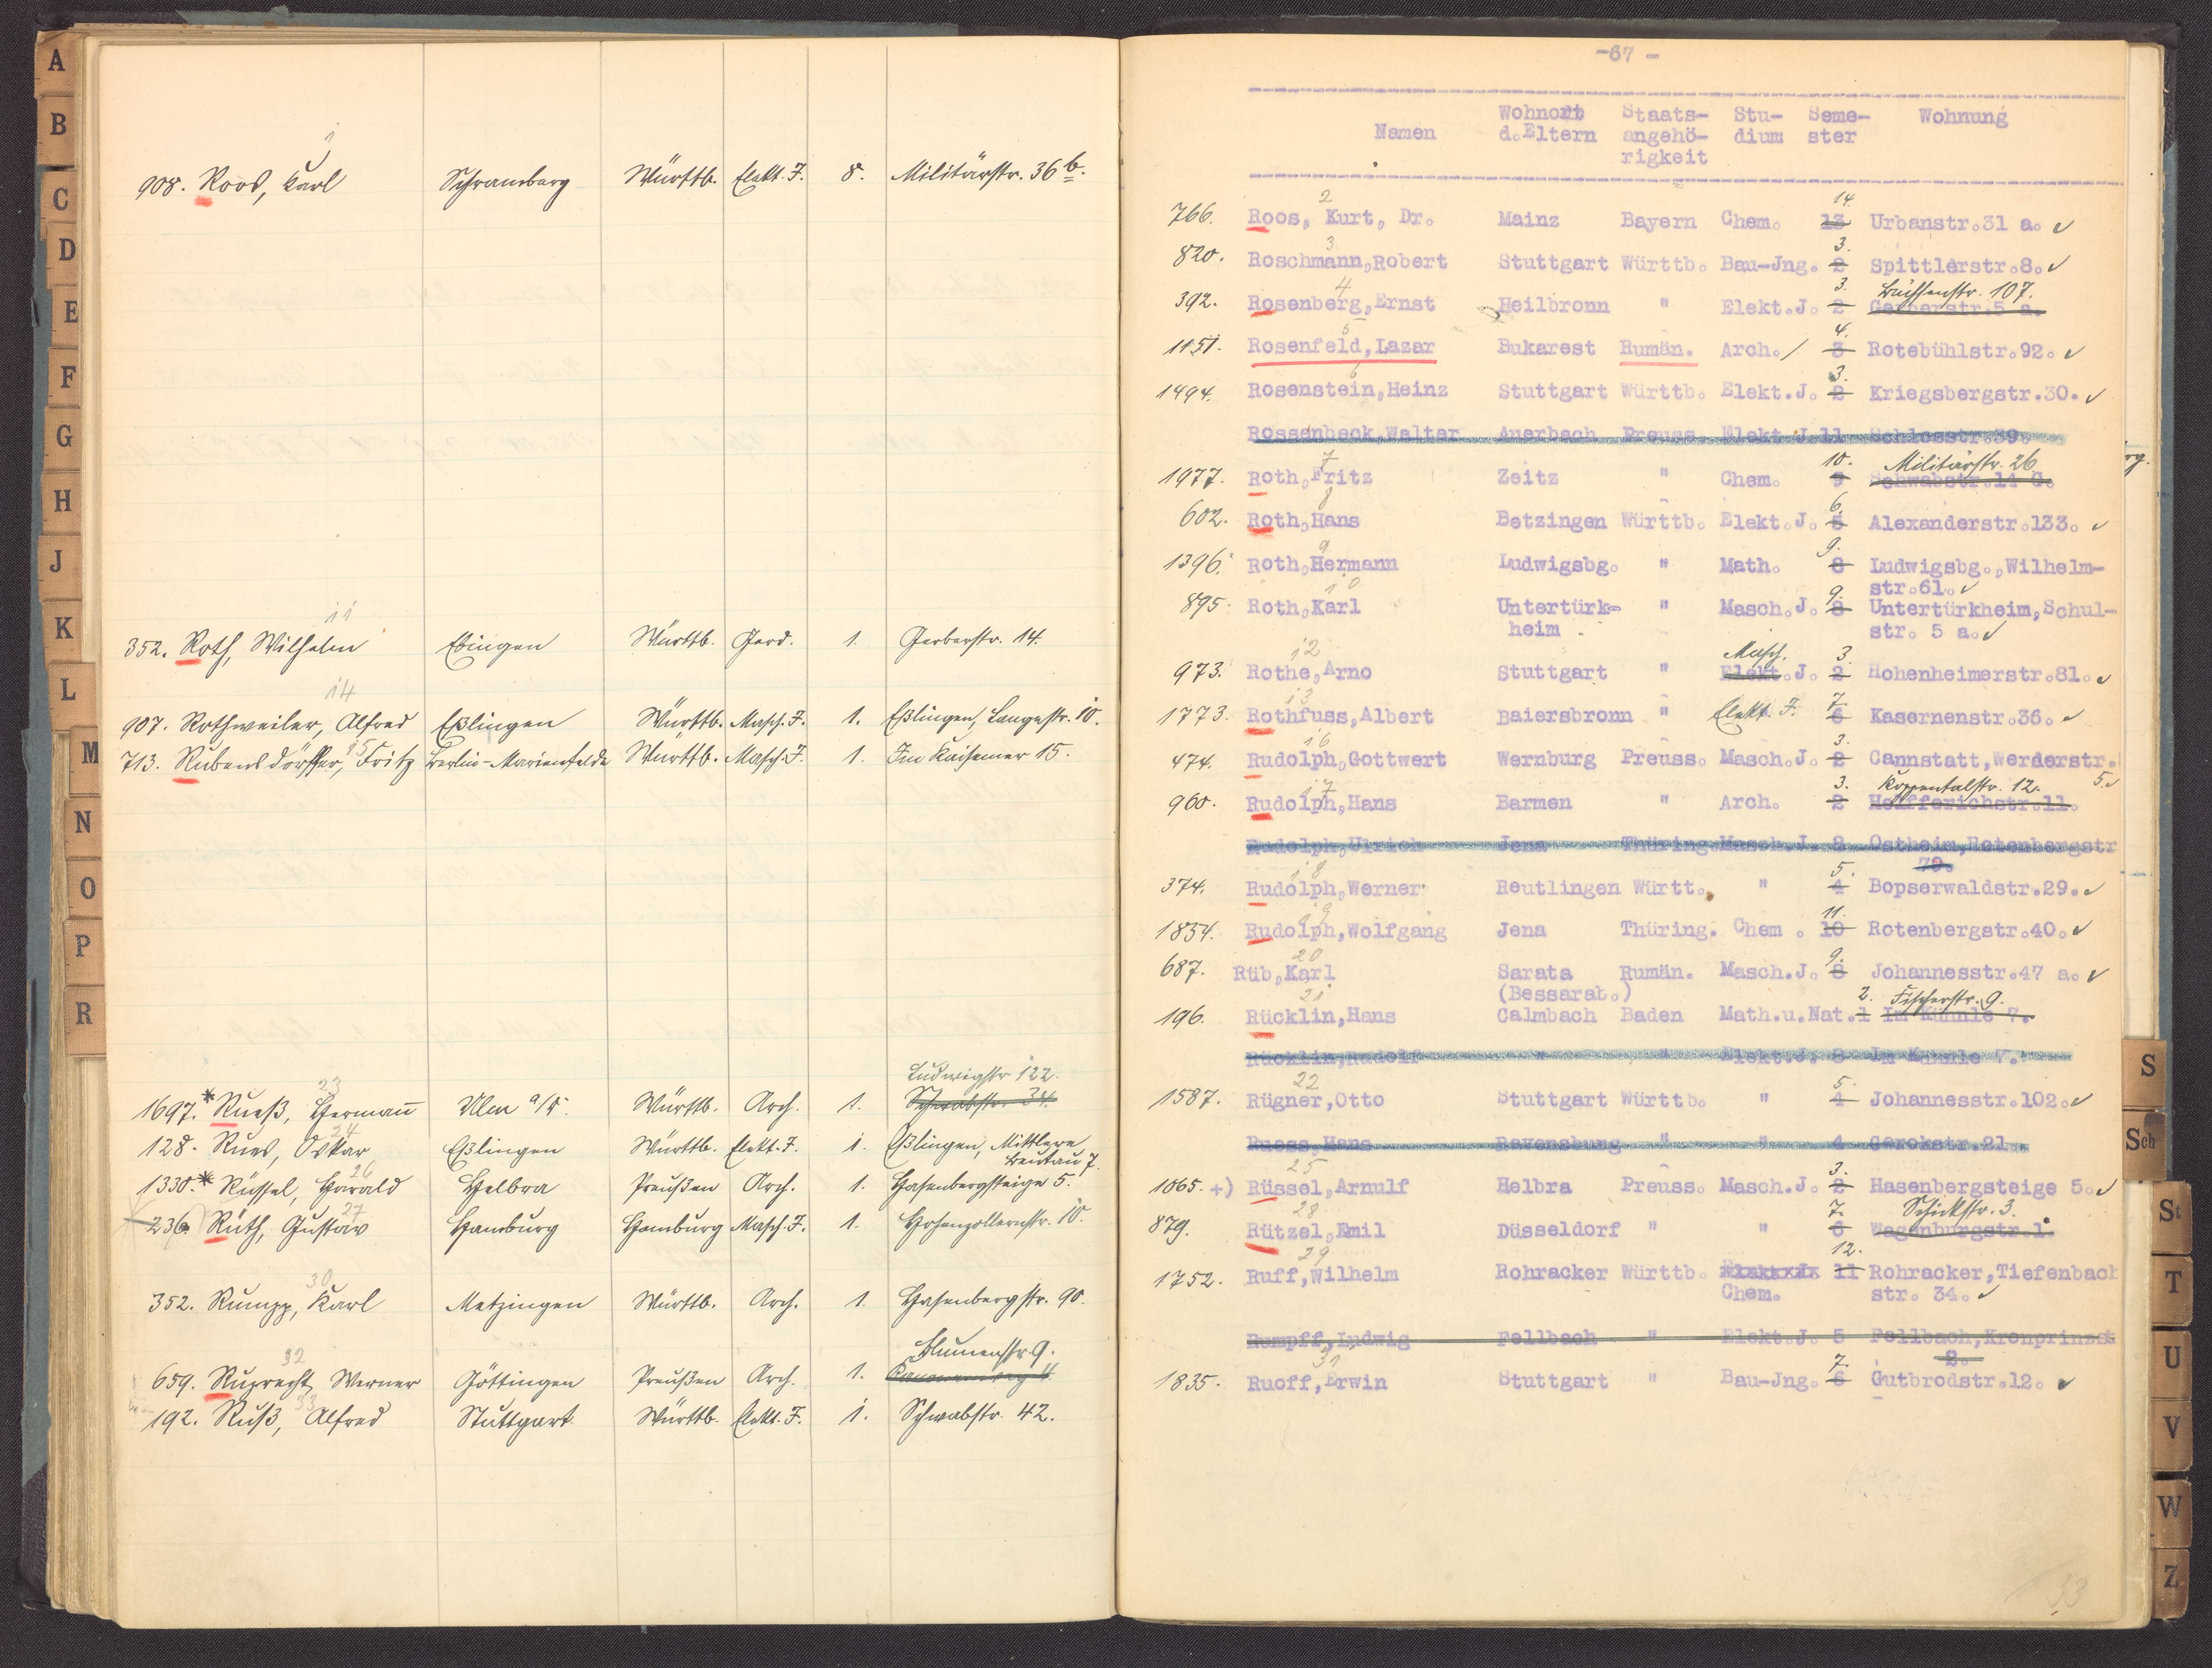 A
B
C
D
E
F
G
H
J
K
L
M
N
O
P
R
1
908. Roos, Karl Schramberg Württb. Elekt. J. 8. Militärstr. 36 b.
11
352. Roth, Wilhelm Ebingen Württb. Geod. 1. Gerberstr. 14.
14
907. Rothweiler, Alfred Eßlingen Württb. Masch. J. 1. Eßlingen, Langestr. 10.
15
713. Rubensdörffer, Fritz Berlin-Marienfelde Württb. Masch. J. 1. Im Kaisemer 15.
23 Ludwigstr 122.
1697.* Rueß, Hermann Ulm a/D. Württb. Arch. 1. Schwabstr. 34.
24
128. Rues, Oskar Eßlingen Württb. Elekt. J. 1. Eßlingen, Mittlere
Beutau 7.
26
1330.* Rüssel, Harald Helbra Preußen Arch. 1. Hasenbergsteige 5.
27
236. Rüth, Gustav Hamburg Hamburg Masch. J. 1. Hohenzollernstr. 10.
30
352. Rumpp, Karl Metzingen Württb. Arch. 1. Hasenbergstr. 90.
32 Blumenstr. 9.
659. Ruprecht, Werner Göttingen Preußen Arch. 1.
33
192. Ruß, Alfred Stuttgart Württb. Elekt. J. 1. Schwabstr. 42.
-67 -
Wohnort Staats- Stu- Seme- Wohnung
Namen d.Eltern angehö- dium ster
rigkeit
2 14.
766. Roos, Kurt, Dr. Mainz Bayern Chem. 13 Urbanstr.31 a. ✓
3 3.
820. Roschmann,Robert Stuttgart Württb. Bau-Jng. 2 Spittlerstr.8. ✓
4 3. Büchsenstr. 107.
392. Rosenberg,Ernst Heilbronn " Elekt.J. 2 Gerberstr.5 a.
5 4.
1151. Rosenfeld,Lazar Bukarest Rumän. Arch./ 3 Rotebühlstr.92. ✓
6 3.
1494. Rosenstein,Heinz Stuttgart Württb. Elekt.J. 2 Kriegsbergstr.30. ✓
Rossenbeck,Walter Auerbach Preuss. Elekt.J.11 Schlosstr.39.
7 10. Militärstr. 26
1977. Roth,Fritz Zeitz " Chem. 9 Schwabstr.14 C.
8 6.
602. Roth,Hans Betzingen Württb. Elekt.J. 5 Alexanderstr.133. ✓
9 9.
1396. Roth,Hermann Ludwigsbg. " Math. 8 Ludwigsbg.,Wilhelm-
str.61. ✓
10 9.
895. Roth,Karl Untertürk- " Masch.J. 8 Untertürkheim,Schul-
heim str. 5 a. ✓
12 Masch. 3.
973. Rothe,Arno Stuttgart " Elekt.J. 2 Hohenheimerstr.81. ✓
13 7.
1773. Rothfuss,Albert Baiersbronn " Elekt. J. 6 Kasernenstr.36. ✓
16 3.
474. Rudolph,Gottwert Wernburg Preuss. Masch.J. 2 Cannstatt,Werderstr.
5. ✓
17 3. Koppentalstr. 12.
960. Rudolph,Hans Barmen " Arch. 2 Hefferichstr.11.
Rudolph,Ulrich Jena Thüring Masch.J. 2 Ostheim,Rotenbergstr
70.
18 5.
374. Rudolph,Werner Reutlingen Württ. " 4 Bopserwaldstr.29. ✓
19 11.
1834. Rudolph,Wolfgang Jena Thüring. Chem . 10 Rotenbergstr.40. ✓
20 9.
687. Rüb,Karl Sarata Rumän. Masch.J. 8 Johannesstr.47 a. ✓
(Bessarab.)
21 2. Fischerstr. 9.
196. Rücklin,Hans Calmbach Baden Math.u.Nat.1 Im Kühnle 7.
Rücklin,Rudolf " " Elekt.J. 8 Im Kühnle 7.
22 5.
1587. Rügner,Otto Stuttgart Württb. " 4 Johannesstr.102. ✓
Ruess,Hans Ravensburg " " 4 Gerokstr.21.
25 3.
1065. +) Rüssel,Arnulf Helbra Preuss. Masch.J. 2 Hasenbergsteige 5. ✓
28 7. Schickstr. 3.
879. Rützel,Emil Düsseldorf " " 6 Wagenburgstr.1.
29 12.
1752. Ruff,Wilhelm Rohracker Württb. Elekt.J. 11 Rohracker,Tiefenbach
Chem. str. 34. ✓
Rumpff,Ludwig Fellbach " Elekt.J. 5 Fellbach,Kronprinzst
2.
31 7.
1835. Ruoff,Erwin Stuttgart " Bau-Jng. 6 Gutbrodstr.12. ✓
33
S
Sch
St
T
U
V
W
Z